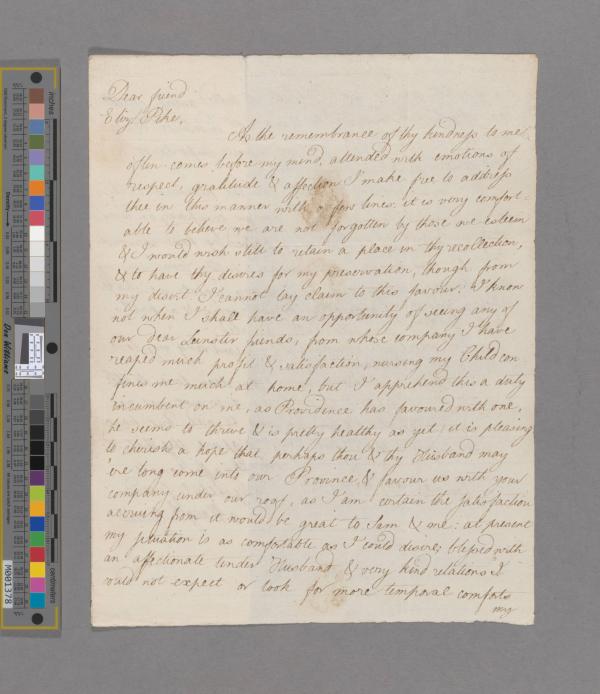 Dear friend
Eliz. Pike,
As the remembrance of thy kindness to me
often comes before my mind, attended with emotions of
respect, gratitude & affection I make free to address
thee in this manner with a few lines: it is very comfort-
able to believe we are not forgotten by those we esteem
& I would wish still to retain a place in thy recollection,
& to have thy desires for my preservation, though from
my desert I cannot lay claim to this favour. I know
not when I shall have an opportunity of seeing any of
our dear Leinster friends, from whose company I have
reaped much profit & satisfaction, nursing my Child con
fines me much at home, but I apprehend this a duty
incumbent on me, as Providence has favoured with one,
he seems to thrive & is pretty healthy as yet: it is pleasing
to cherish a hope that perhaps thou & thy Husband may
'ere long come into our Province, & favour us with your
company under our roof, as I am certain the satisfaction
accruing from it would be great to Sam & me: at present
my situation is as comfortable as I could desire; blessed with
an affectionate tender Husband & very kind relations I
could not expect or look for more temporal comforts
my
inches
Don Williams
M001378